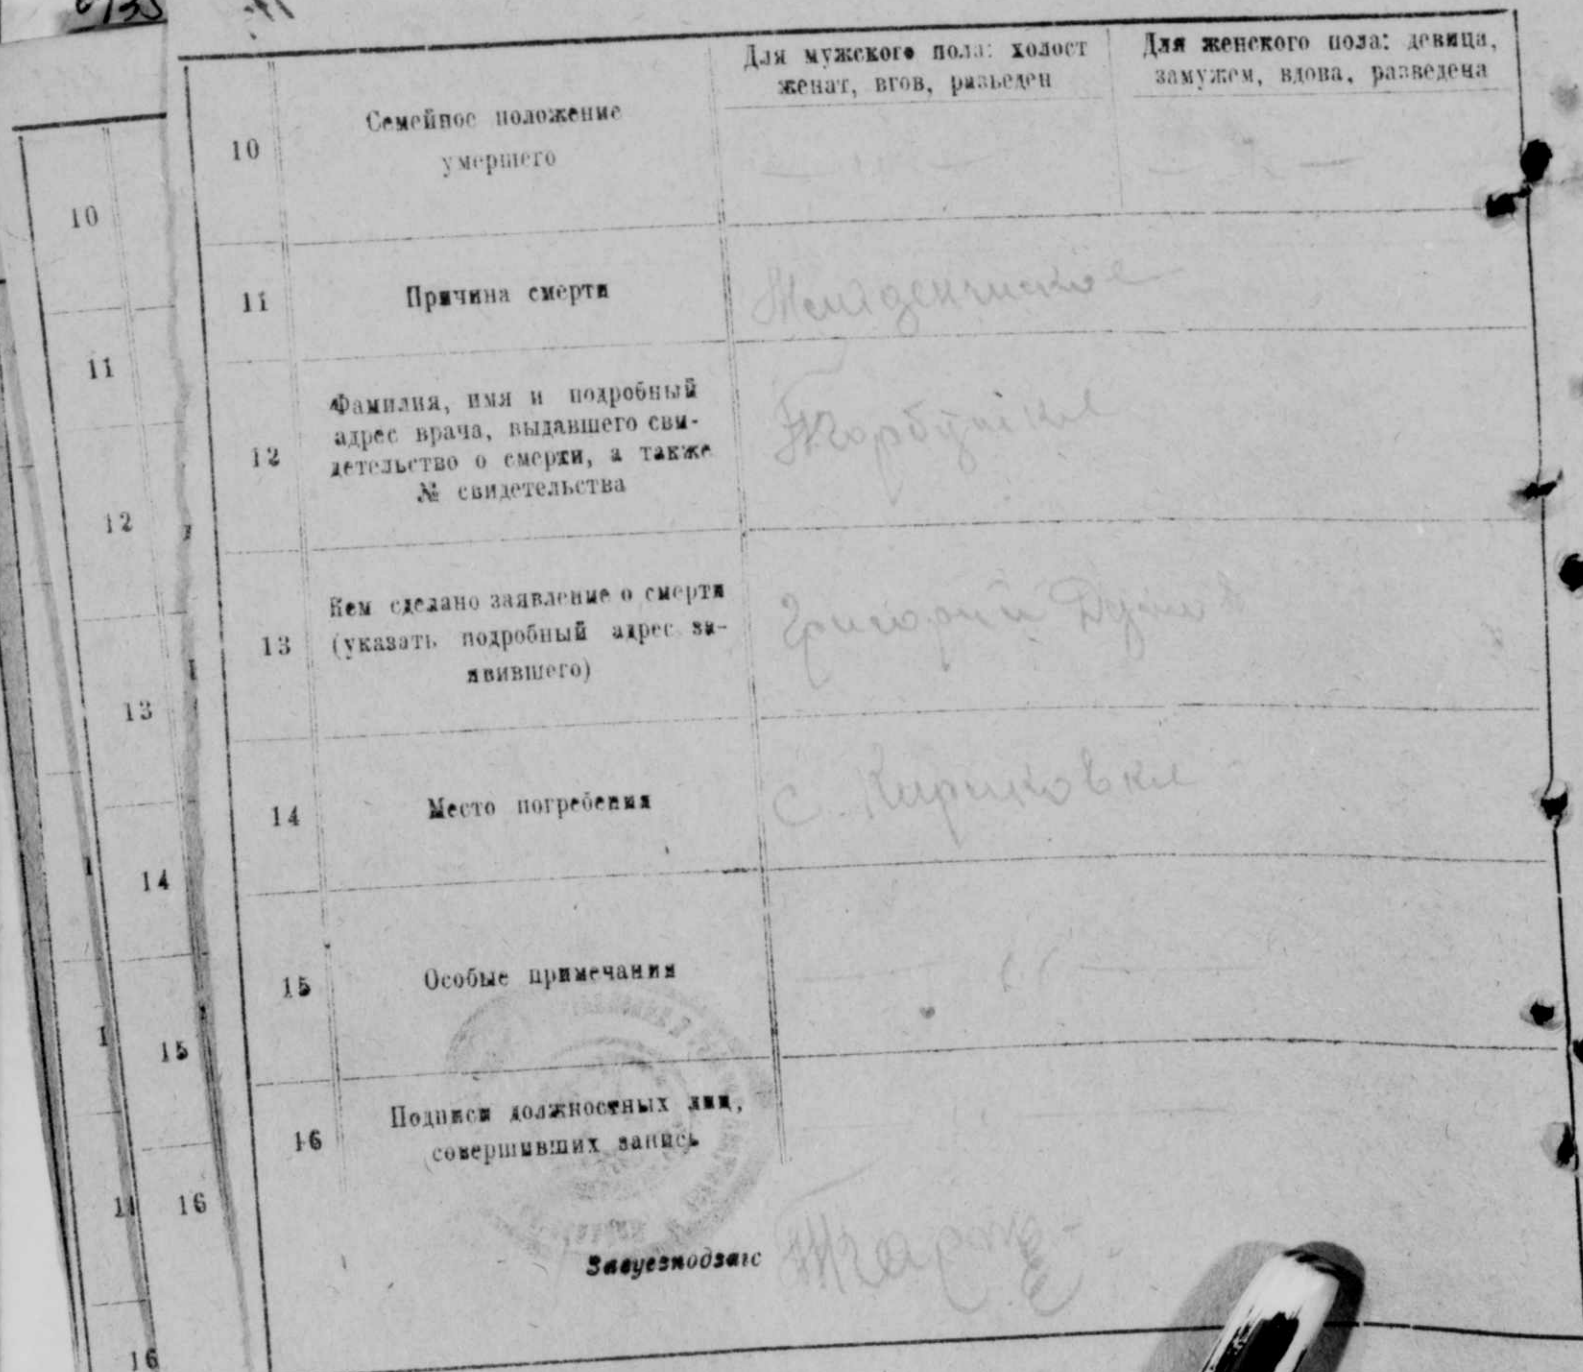 Для мужского пола: холост
женат, вгов, разведен
Для женского пола: девица,
замужем, вдова, разведена
10
Семейное положение
умершего
10
11
Причина смерти
11
12
Фамилия, имя и подробный
адрес врача, выдавшего сви-
детельство о смерти, а также
№ свидетельства
12
13
Кем сделано заявление о смерти
(указать подробный адрес за-
явившего)
Григорий
13
14
Место погребения
С. Кириковка
14
15
Особые примечания
15
16
Подписи должностных лиц,
совершивших запись
16
Завуезподзагс
16